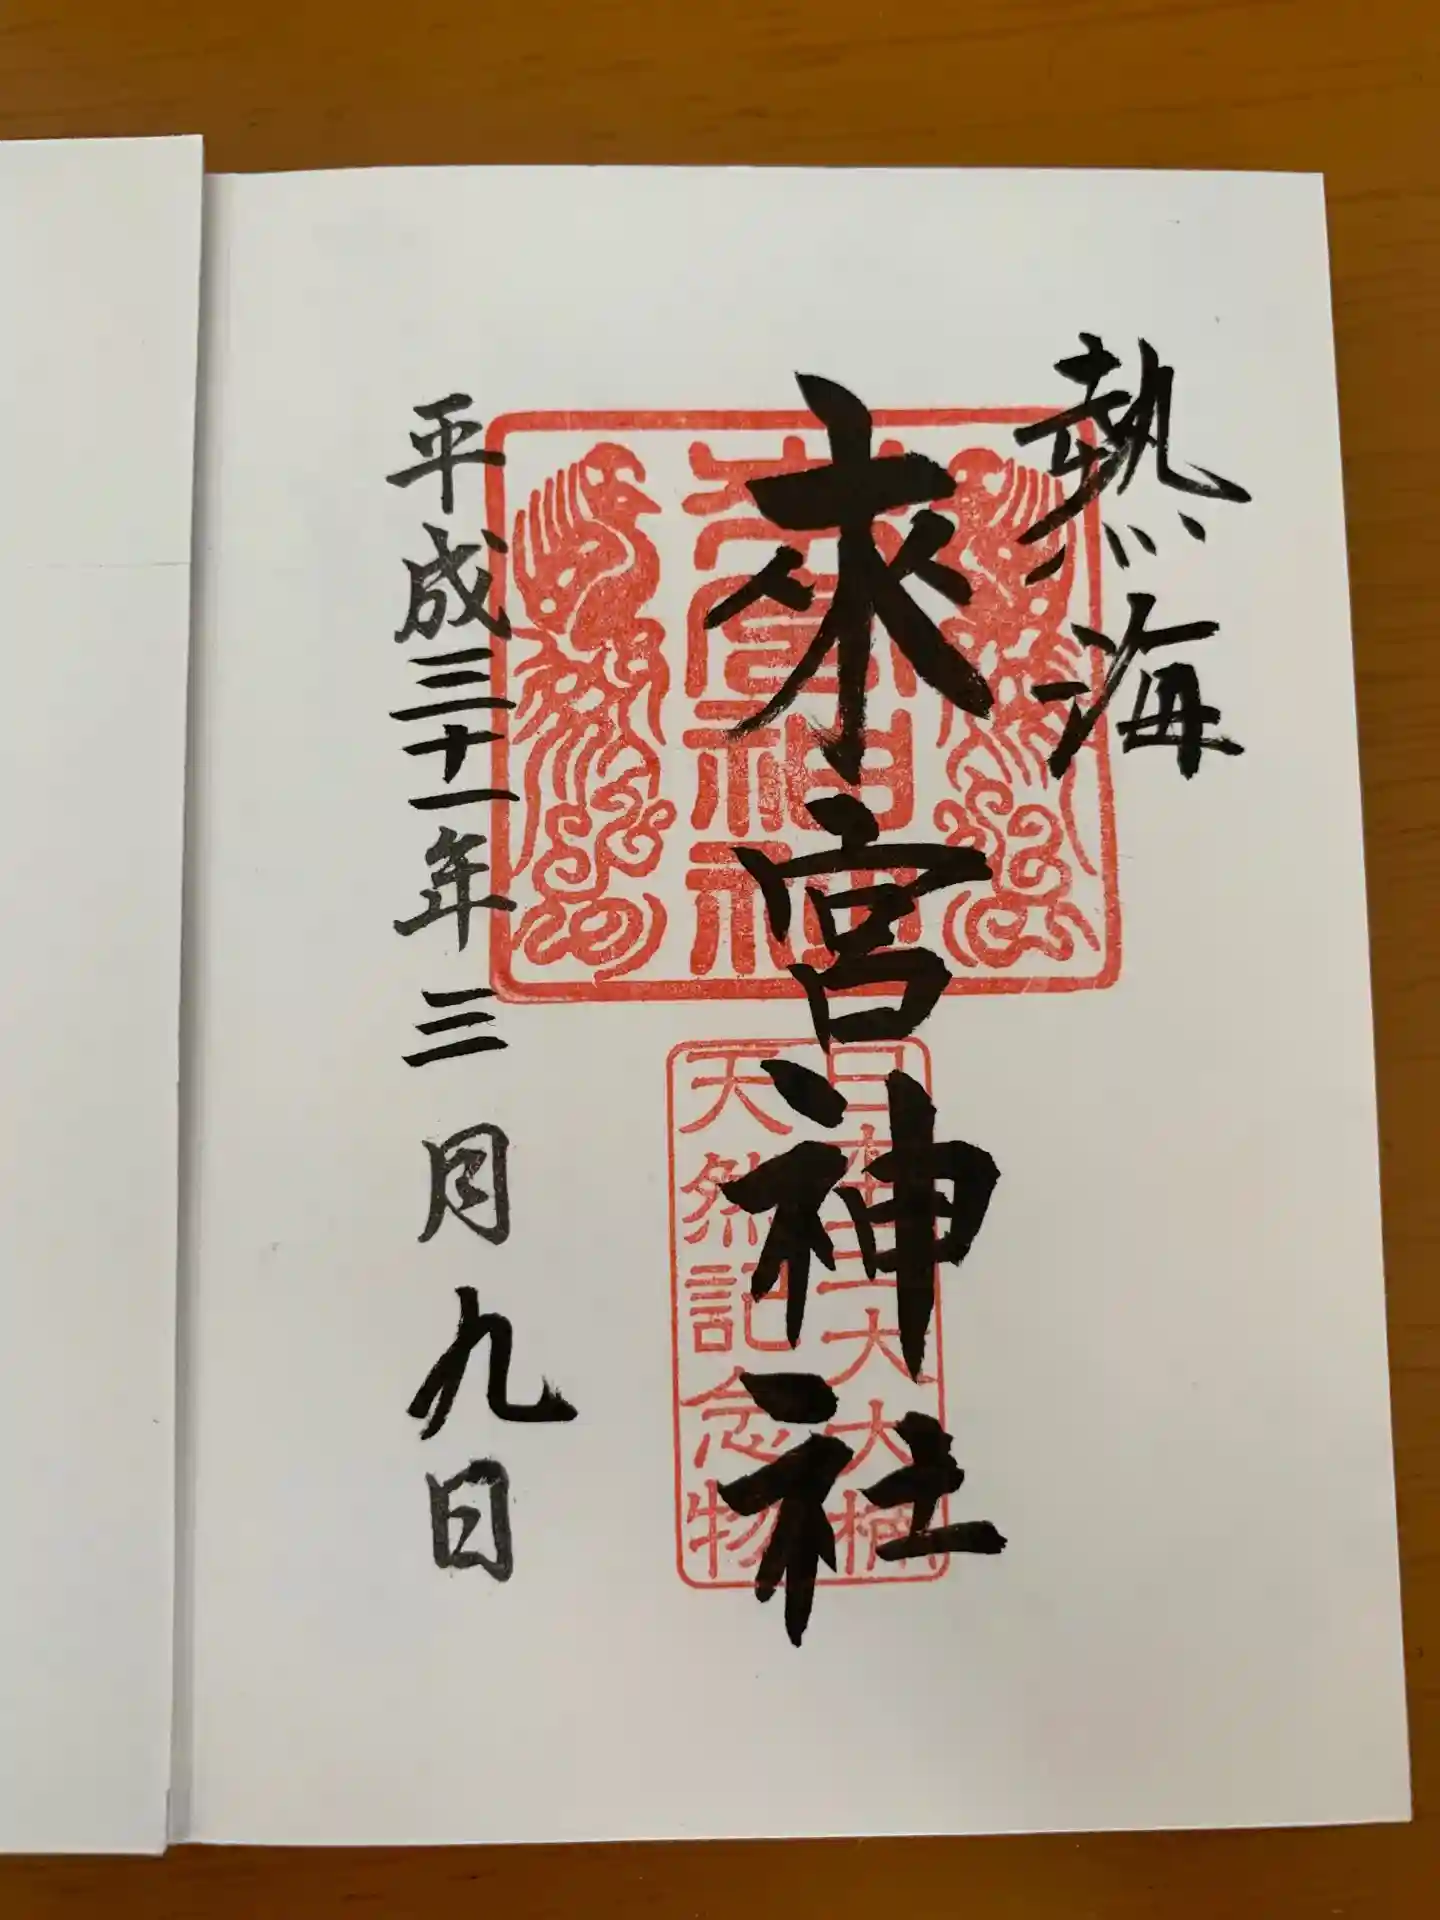 熱海
來宮神社
來宮神社
日本三大大楠
天然記念物
平成三十一年三月九日